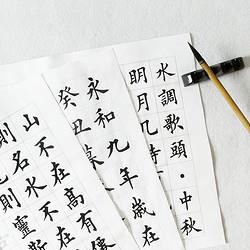 水調歌頭·中秋
明月几時
永和九年歲在
癸丑暮
山不在高有僊
則名水不在
則靈斯